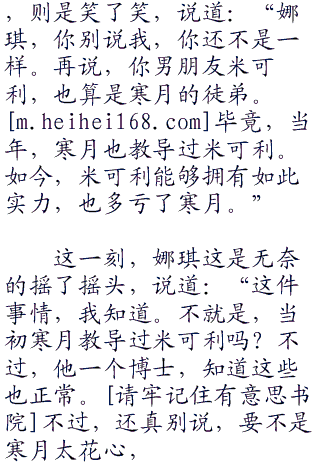 ，则是笑了笑，说道：“娜
琪，你别说我，你还不是一
样。再说，你男朋友米可
利，也算是寒月的徒弟。
[m.heihei168.com]毕竟，当
年，寒月也教导过米可利。
如今，米可利能够拥有如此
实力，也多亏了寒月。”
这一刻，娜琪这是无奈
的摇了摇头，说道：“这件
事情，我知道。不就是，当
初寒月教导过米可利吗？不
过，他一个博士，知道这些
也正常。[请牢记住有意思书
院]不过，还真别说，要不是
寒月太花心，